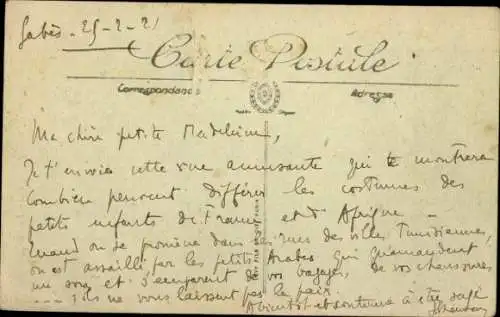 Gabès - 25-2-21
Carte Postale
Correspondance
Adresse
Ma chère petite Madeleine,
Je t'envoie cette vue amusante qui te montrera
combien peuvent différer les costumes des
petits enfants de France et d'Afrique -
Quand on se promène dans les rues des villes Tunisiennes,
on est assailli par les petits Arabes qui quémandent
un sou, et s'emparent de vos bagages, de vos chaussures
.... ils ne vous laissent pas la paix.
A bientôt et continue à être sage